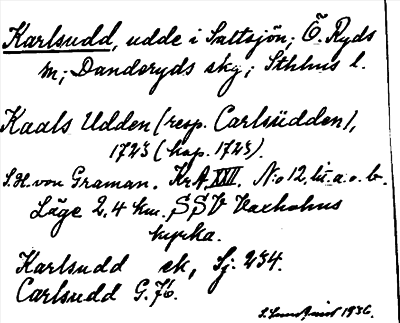 Karlsudd, udde i Saltsjön; Ö. Ryds
sn; Danderyds skg; Sthlms l.
Kaals Udden (resp. Carlsüdden),
1723 (kop. 1723).
S.H. von Graman. KrA XXII. No 12, lit. a. o. b.
Läge 2,4 km. SSV Vaxholms
kyrka.
Karlsudd ek, Sj. 234.
Carlsudd G.76.
1936.